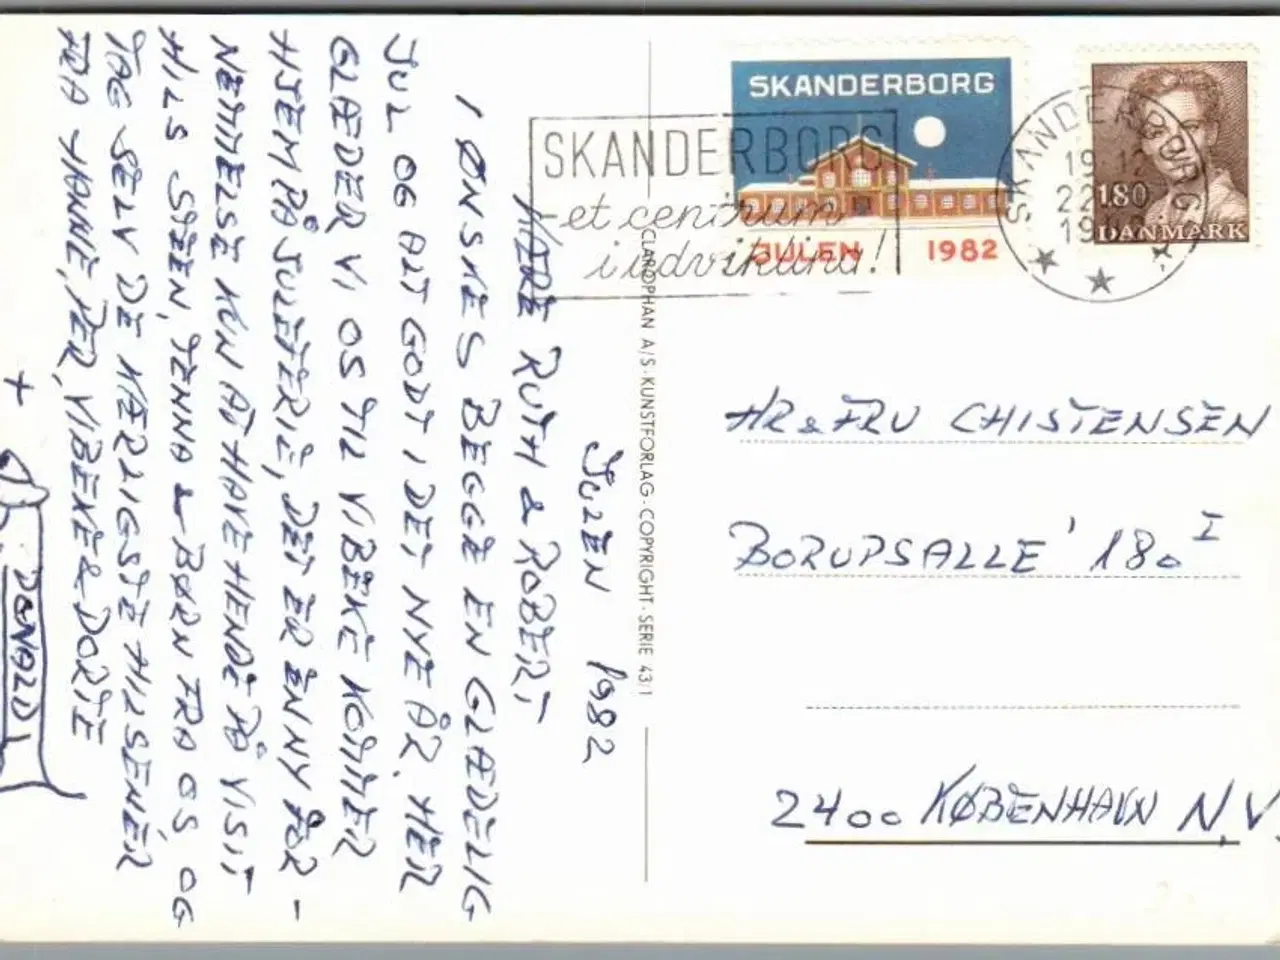 JULEN 1982
KÆRE RUTH & ROBERT,
I ØNSKES BEGGE EN GLÆDELIG
JUL OG ALT GODT I DET NYE ÅR. HER
GLÆDER VI OS TIL VIBEKE KOMMER
HJEM PÅ JULEFERIE, DET ER EN NY FOR-
NEMMELSE KUN AT HAVE HENDE PÅ VISIT
HILS STEEN, JENNA & BØRN FRA OS OG
TAG SELV DE KÆRLIGSTE HILSENER
FRA HANNE, PER, VIBEKE & DORTE
+
DONALD
CLAROPHAN A/S · KUNSTFORLAG · COPYRIGHT · SERIE 43/1
SKANDERBORG
JULEN 1982
SKANDERBORG
et centrum
i udvikling!
SKANDERBORG
19.12
22
19
1.80
DANMARK
HR & FRU CHISTENSEN
BORUPSALLE' 180 I
2400 KØBENHAVN N.V.